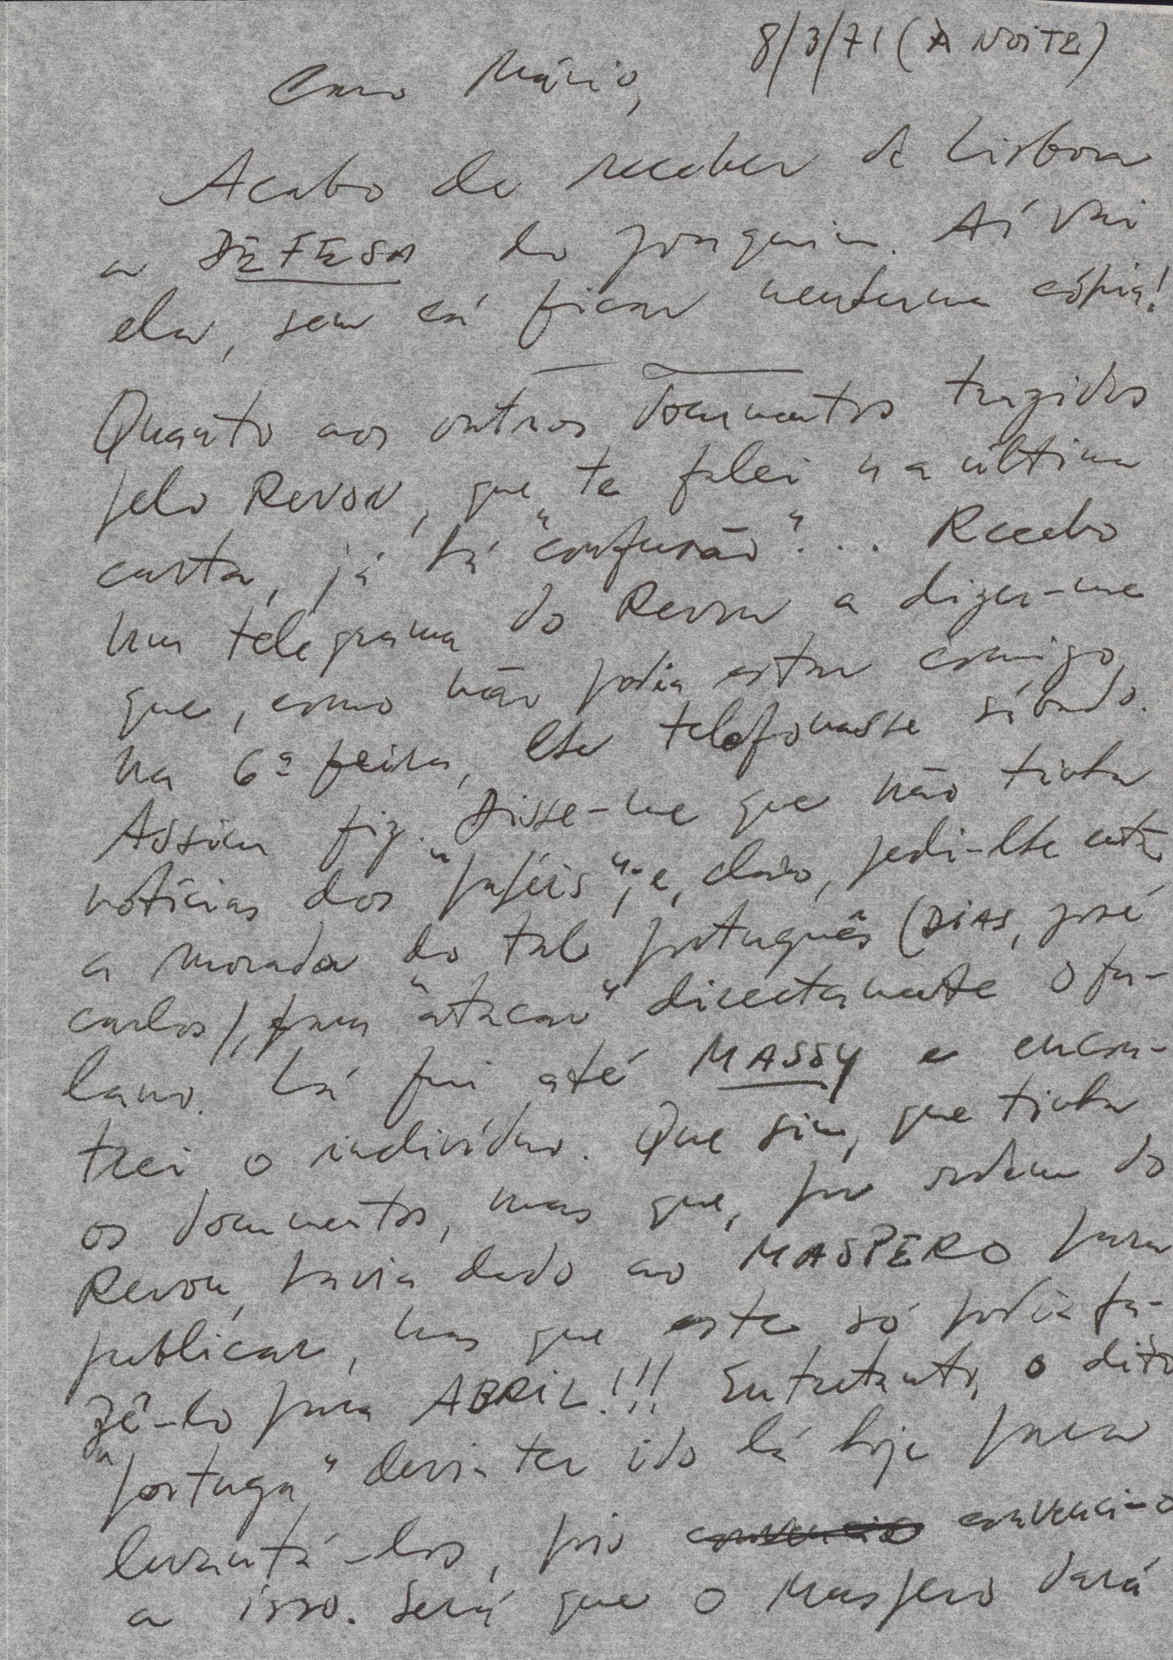 8/3/71 (À NOITE)
Caro Mário,
Acabo de receber de Lisboa
a DEFESA do Joaquim. Aí vai
ela, sem cá ficar nenhuma cópia!
Quanto aos outros documentos trazidos
pelo REVON, que te falei na última
carta, já há "confusão"... Recebo
um telegrama do Revon a dizer-me
que, como não podia estar comigo
na 6ª feira, lhe telefonasse sábado.
Assim fiz. Disse-me que não tinha
notícias dos "papéis"; e, claro, pedi-lhe então
a morada do tal português (DIAS, José
Carlos), para "atacar" directamente o fu-
lano. Lá fui até MASSY e encon-
trei o indivíduo. Que sim, que tinha
os documentos, mas que, por ordem do
Revon, havia dado ao MASPERO para
publicar, mas que este só podia fa-
zê-lo para ABRIL!!! Entretanto, o dito
"portuga" devia ter ido lá hoje para
levantá-los, pois convenci-o
a isso. Será que o Maspero dará